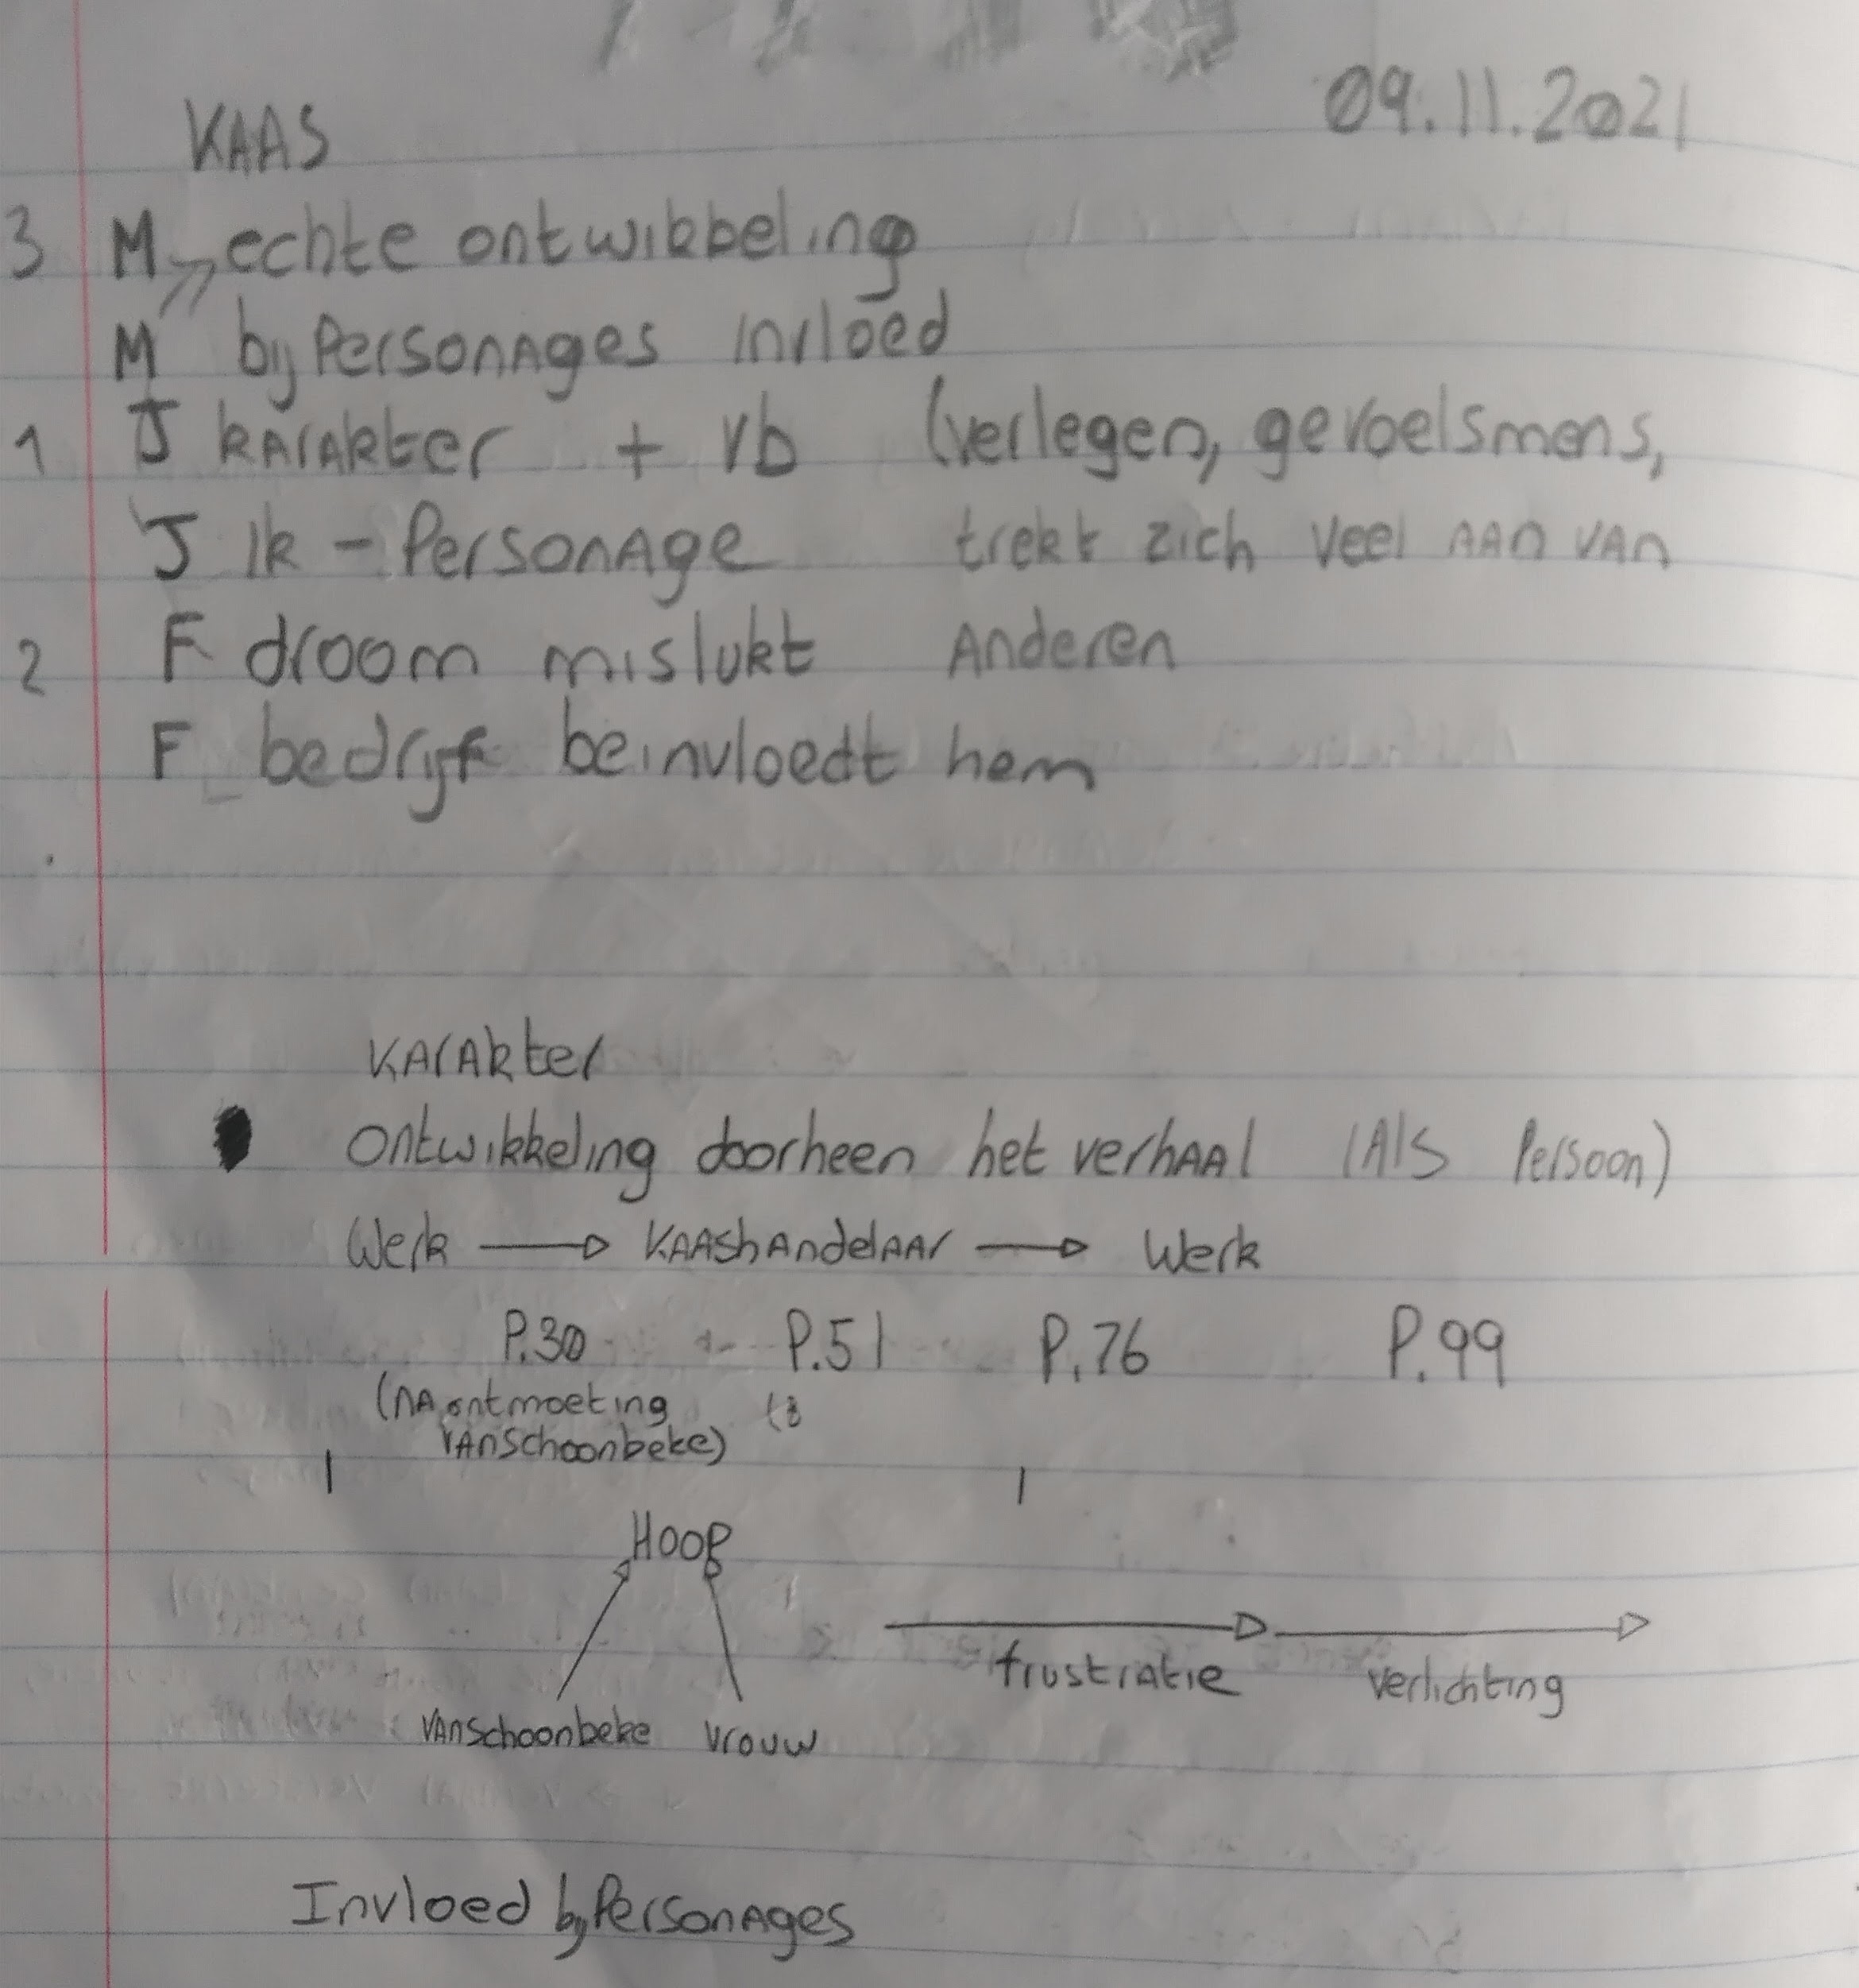 KAAS 09.11.2021
3 M echte ontwikkeling
M bijpersonages invloed
1 J karakter + vb (verlegen, gevoelsmens,
J ik-personage trekt zich veel aan van
2 F droom mislukt anderen
F bedrijf beinvloedt hem
Karakter
Ontwikkeling doorheen het verhaal (Als persoon)
Werk → Kaashandelaar → Werk
P.30 P.51 P.76 P.99
(na ontmoeting
Vanschoonbeke)
Hoop
frustratie verlichting
Vanschoonbeke Vrouw
Invloed bijpersonages